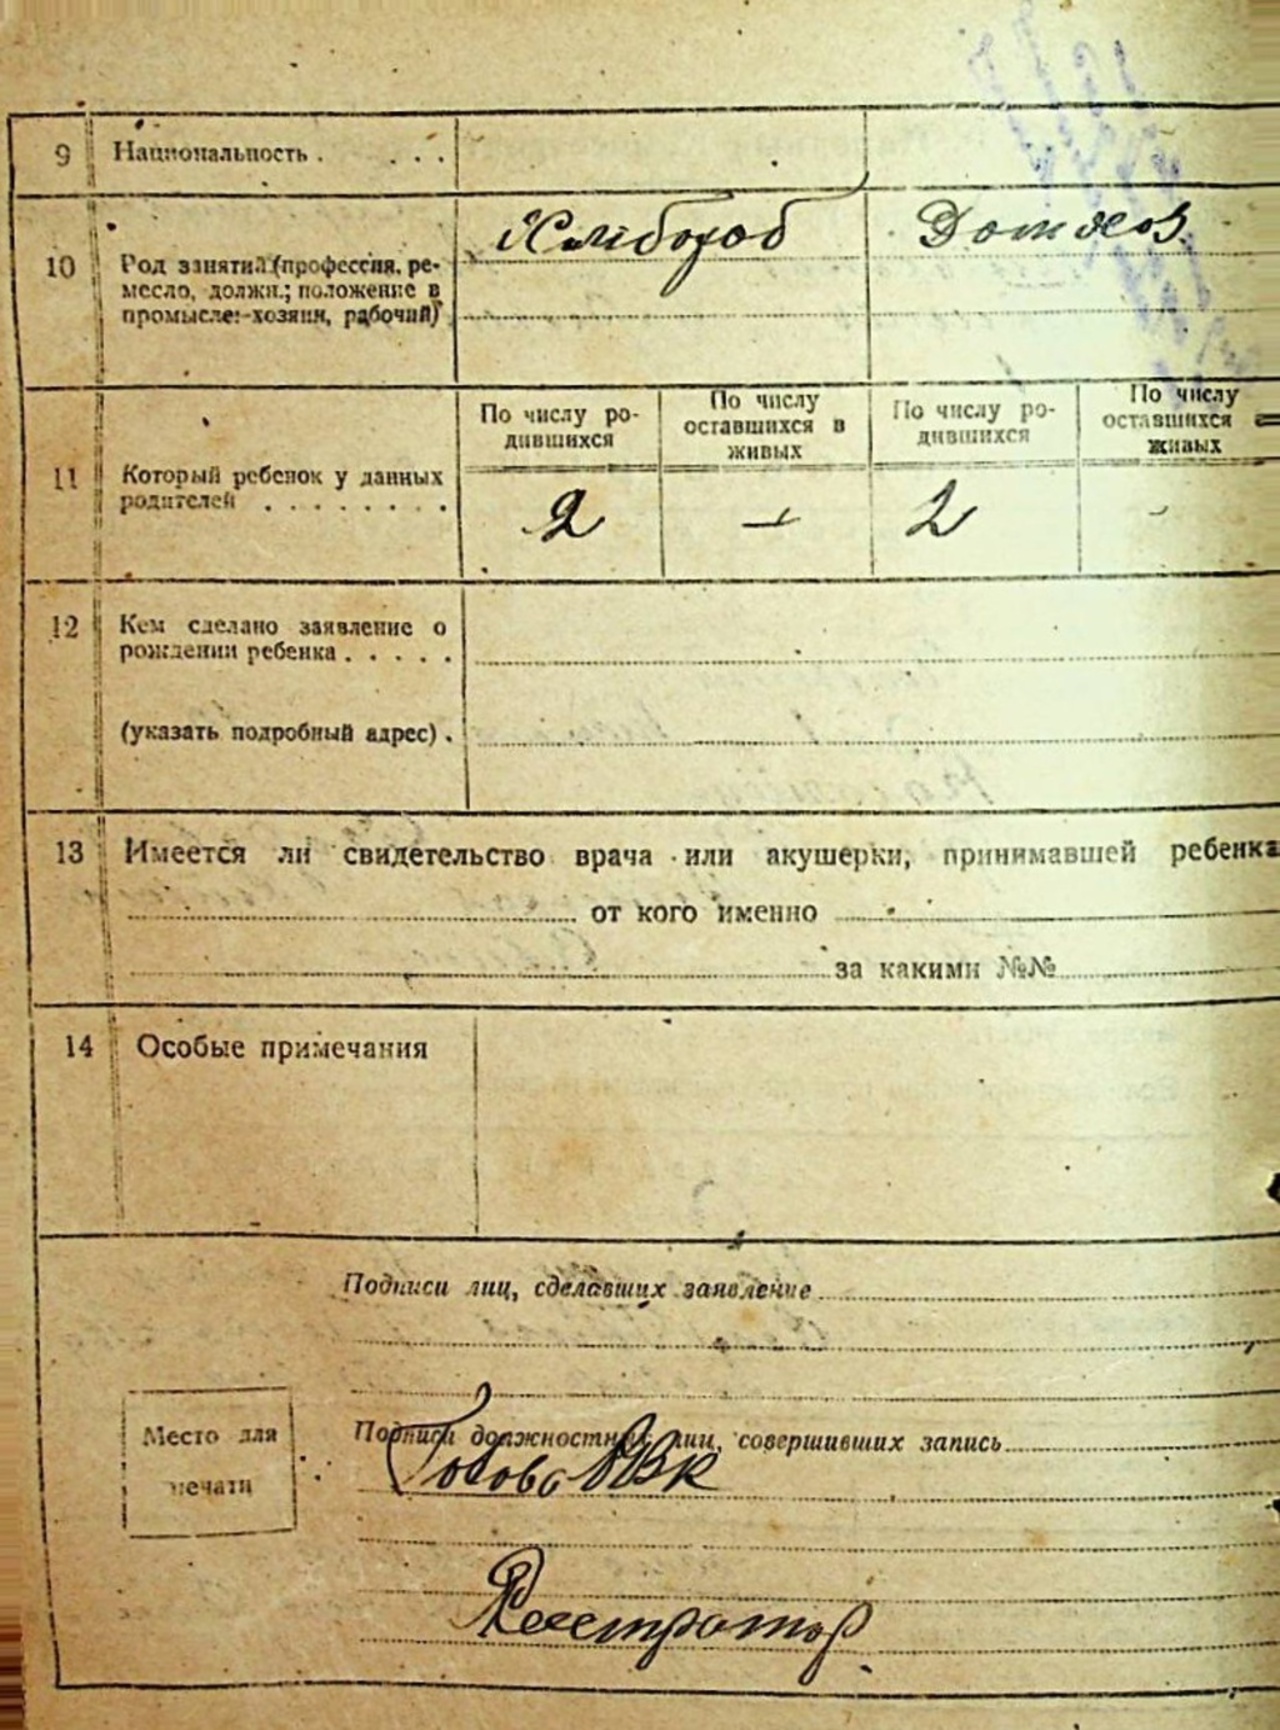 9 Национальность . . . .
Хлібороб Домхоз.
10 Род занятий (профессия, ре-
месло, должн.; положение в
промысле:-хозяин, рабочий)
По числу ро-
дившихся
По числу
оставшихся в
живых
По числу ро-
дившихся
По числу
оставшихся в
живых
11 Который ребенок у данных
родителей . . . . . . . .
2 — 2 -
12 Кем сделано заявление о
рождении ребенка . . . . .
(указать подробный адрес) .
13 Имеется ли свидетельство врача или акушерки, принимавшей ребенка
от кого именно
за какими №№
14 Особые примечания
Подписи лиц, сделавших заявление
Место для
печати
Подписи должностных лиц, совершивших запись
Голова ВК
Реєстратор